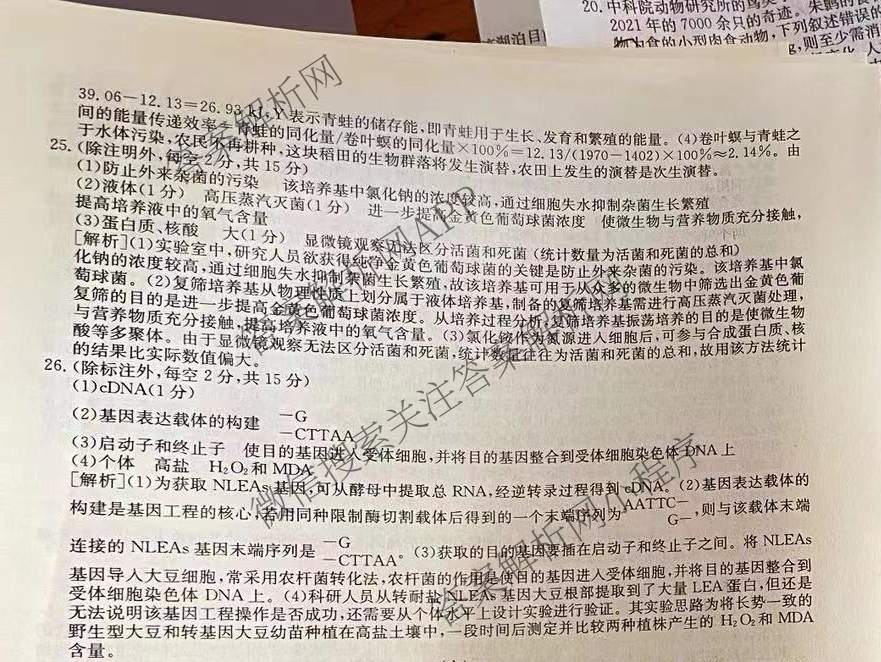 20. 中科院动物研究所的鸟类
2021年的7000余只的奇迹。朱鹮的食
物为食的小型肉食动物,下列叙述错误的
湖泊目
g,则至少需消
39.06-12.13=26.93
表示青蛙的储存能,即青蛙用于生长、发育和繁殖的能量。(4)卷叶螟与青蛙之
间的能量传递效率=青蛙的同化量/卷叶螟的同化量×100%=12.13/(1970-1402)×100%≈2.14%。由
于水体污染,农民不再耕种,这块稻田的生物群落将发生演替,农田上发生的演替是次生演替。
25.(除注明外,每空2分,共15分)
(1)防止外来杂菌的污染 该培养基中氯化钠的浓度较高,通过细胞失水抑制杂菌生长繁殖
(2)液体(1分) 高压蒸汽灭菌(1分) 进一步提高金黄色葡萄球菌浓度 使微生物与营养物质充分接触,
提高培养液中的氧气含量
(3)蛋白质、核酸 大(1分) 显微镜观察无法区分活菌和死菌(统计数量为活菌和死菌的总和)
[解析](1)实验室中,研究人员欲获得纯净金黄色葡萄球菌的关键是防止外来杂菌的污染。该培养基中氯
化钠的浓度较高,通过细胞失水抑制杂菌生长繁殖,故该培养基可用于从众多的微生物中筛选出金黄色葡
萄球菌。(2)复筛培养基从物理性质上划分属于液体培养基,制备的复筛培养基需进行高压蒸汽灭菌处理,
复筛的目的是进一步提高金黄色葡萄球菌浓度。从培养过程分析,复筛培养基振荡培养的目的是使微生物
与营养物质充分接触,提高培养液中的氧气含量。(3)氯化铵作为氮源进入细胞后,可参与合成蛋白质、核
酸等多聚体。由于显微镜观察无法区分活菌和死菌,统计数量往往为活菌和死菌的总和,故用该方法统计
的结果比实际数值偏大。
26.(除标注外,每空2分,共15分)
(1)cDNA(1分)
(2)基因表达载体的构建 -G
-CTTAA
(3)启动子和终止子 使目的基因进入受体细胞,并将目的基因整合到受体细胞染色体DNA上
(4)个体 高盐 H₂O₂和MDA
[解析](1)为获取NLEAs基因,可从酵母中提取总RNA,经逆转录过程得到cDNA。(2)基因表达载体的
构建是基因工程的核心,若用同种限制酶切割载体后得到的一个末端序列为 AATTC-
G- ,则与该载体末端
连接的NLEAs基因末端序列是 -G
-CTTAA。(3)获取的目的基因要插在启动子和终止子之间。将NLEAs
基因导入大豆细胞,常采用农杆菌转化法,农杆菌的作用是使目的基因进入受体细胞,并将目的基因整合到
受体细胞染色体DNA上。(4)科研人员从转耐盐NLEAs基因大豆根部提取到了大量LEA蛋白,但还是
无法说明该基因工程操作是否成功,还需要从个体水平上设计实验进行验证。其实验思路为将长势一致的
野生型大豆和转基因大豆幼苗种植在高盐土壤中,一段时间后测定并比较两种植株产生的H₂O₂和MDA
含量。
答案解析网
微信搜索关注答案解析网APP
答案解析网小程序